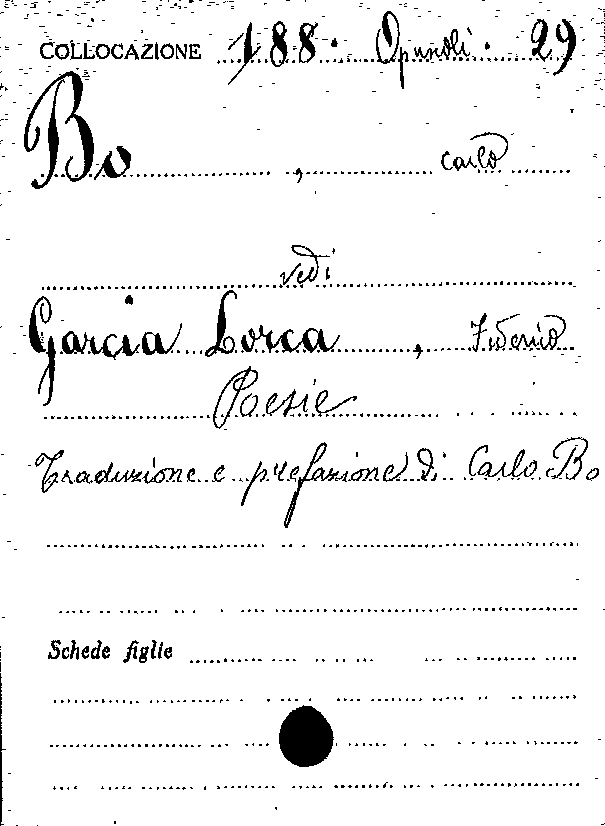 COLLOCAZIONE 188. Opuscoli. 29
Bo, Carlo
vedi
Garcia Lorca, Federico
Poesie
Traduzione e prefazione di Carlo Bo
Schede figlie